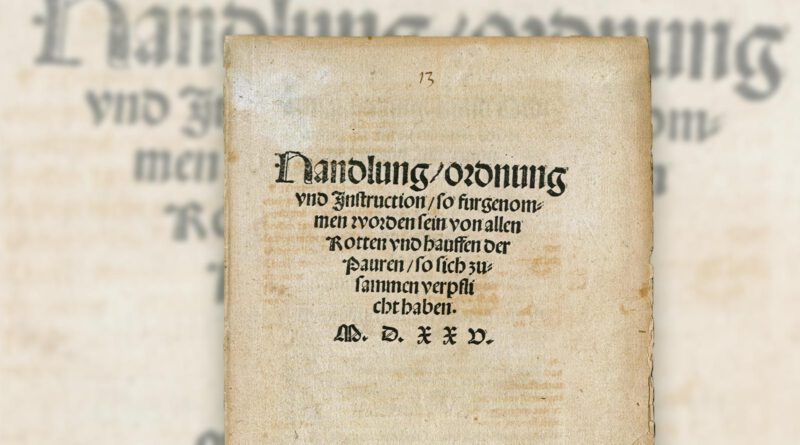 13
Handlung/ordnung
vnd Instruction/so furgenom-
men worden sein von allen
Rotten vnd hauffen der
Pauren/so sich zu-
sammen verpfli
cht haben.
M. D. X X V.